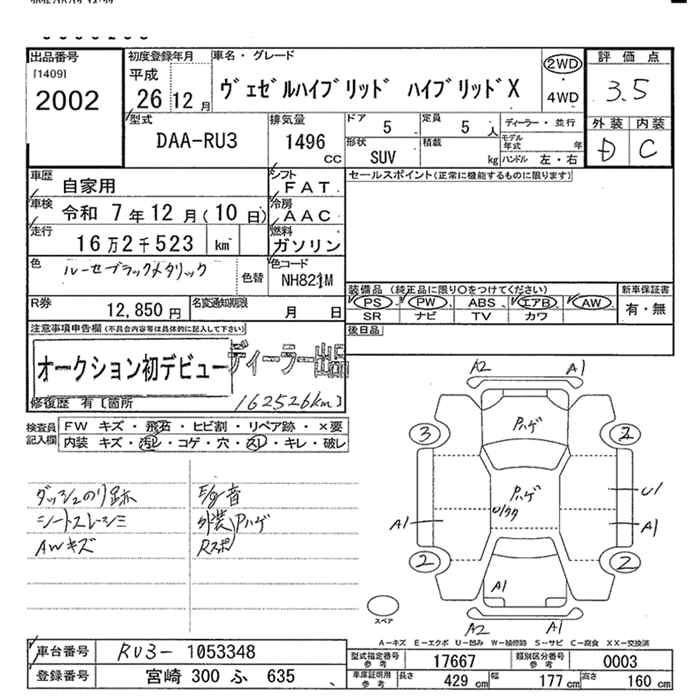 出品番号
[1409]
2002
初度登録年月
平成
26 12 月
車名・グレード
ヴェゼルハイブリッド ハイブリッドX
2WD
4WD
評価点
3.5
外装 内装
D C
型式
DAA-RU3
排気量
1496
CC
ドア
5
定員
5 人
形状
SUV
積載
kg
ディーラー・並行
モデル
年式 年
ハンドル 左・右
車歴
自家用
シフト
FAT
セールスポイント(正常に機能するものに限ります)
車検
令和 7年 12月(10日)
冷房
AAC
走行
16万2千523 km
燃料
ガソリン
色
ルーセブラックメタリック
色替
色コード
NH821M
装備品 (純正品に限り○をつけてください)
PS PW ABS エアB AW
SR ナビ TV カワ
新車保証書
有・無
後日品
R券
12,850 円
名変通知期限
月 日
注意事項申告欄(不具合内容等は具体的に記入して下さい)
オークション初デビュー
ディーラー出品
修復歴 有〔箇所
162526km)
検査員
記入欄
FW キズ・飛石・ヒビ割・リペア跡・×要
内装 キズ・汚レ・コゲ・穴・スレ・キレ・破レ
ダッシュのり跡
シートスレシミ
AWキズ
E/g音
外装Pハゲ
Rスポ
A2 A1
Pハゲ
3 2
Pハゲ
U1
A1 A1
2 2
A1
A2 A1
スペア
A-キズ E-エクボ U-凹み W-補修跡 S-サビ C-腐食 XX-交換済
車台番号
RU3- 1053348
登録番号
宮崎 300 ふ 635
型式指定番号
参考
17667
類別区分番号
参考
0003
車庫証明用
参考
長さ
429 cm
幅
177 cm
高さ
160 cm